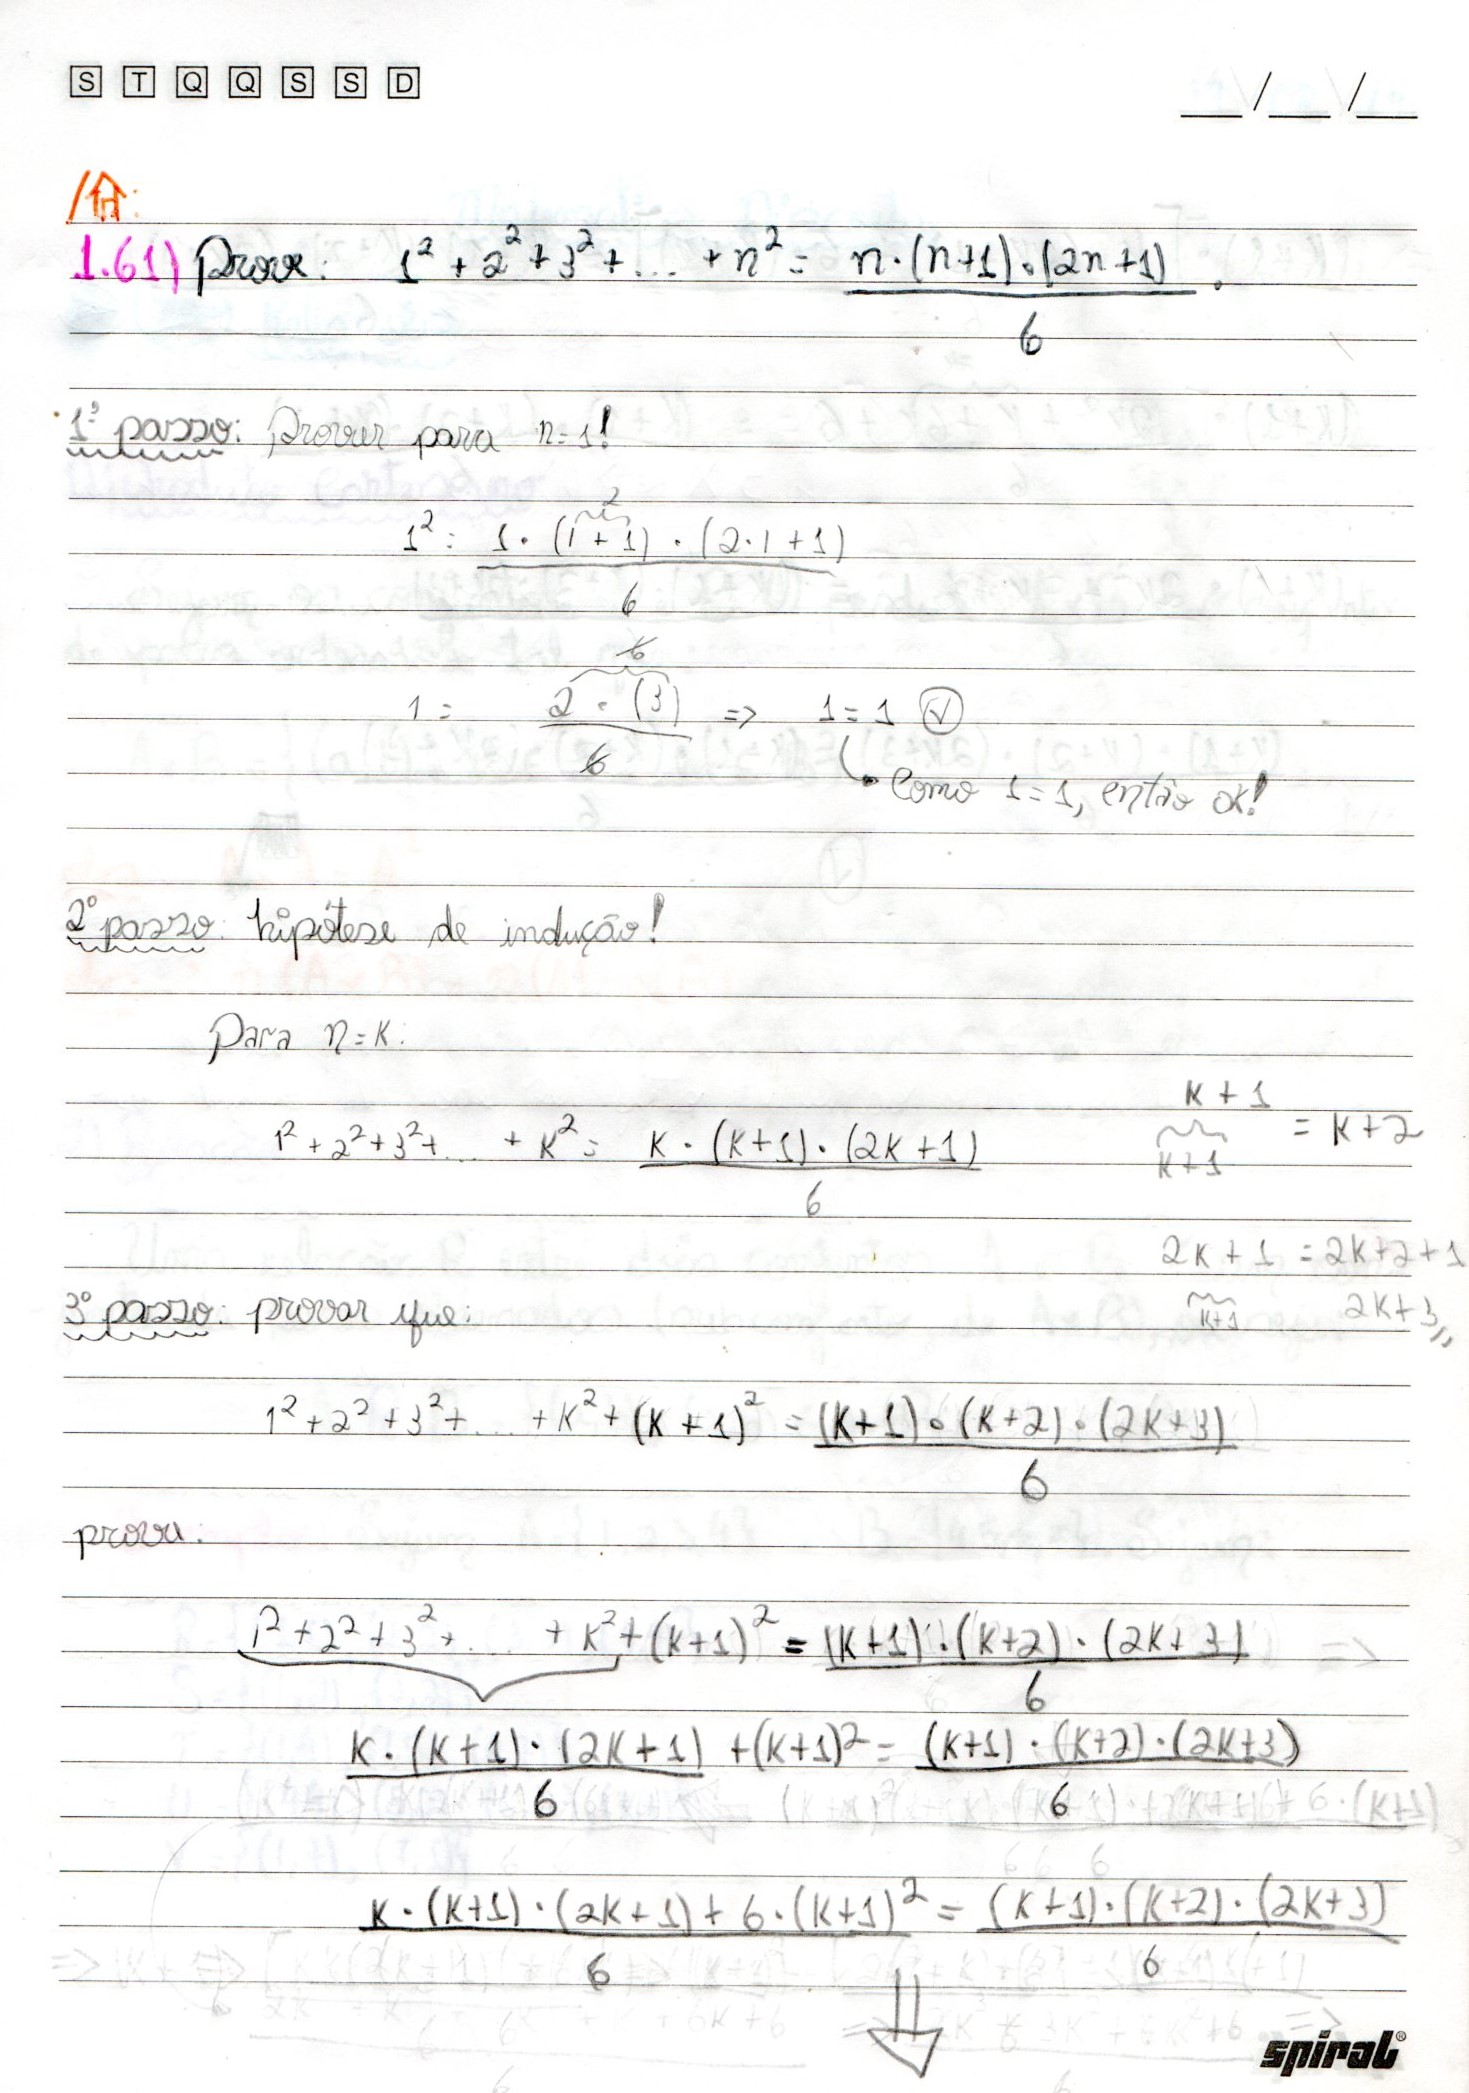 S T Q Q S S D
__/__/__
1.61) Prova: 1² + 2² + 3² + ... + n² = n·(n+1)·(2n+1) .
6
1º passo: Provar para n=1!
2
1² = 1·(1+1)·(2·1+1)
6
6
1 = 2·(3) => 1=1 ✓
6
Como 1=1, então ok!
2º passo: hipótese de indução!
Para n=k:
k+1
1² + 2² + 3² + ... + k² = k·(k+1)·(2k+1)
6
= k+2
k+1
2k+1 = 2k+2+1
k+1 2k+3,,
3º passo: provar que:
1² + 2² + 3² + ... + k² + (k+1)² = (k+1)·(k+2)·(2k+3)
6
prova:
1² + 2² + 3² + ... + k² + (k+1)² = (k+1)·(k+2)·(2k+3)
6
k·(k+1)·(2k+1) + (k+1)² = (k+1)·(k+2)·(2k+3)
6 6
k·(k+1)·(2k+1) + 6·(k+1)² = (k+1)·(k+2)·(2k+3)
6 6
spiral®